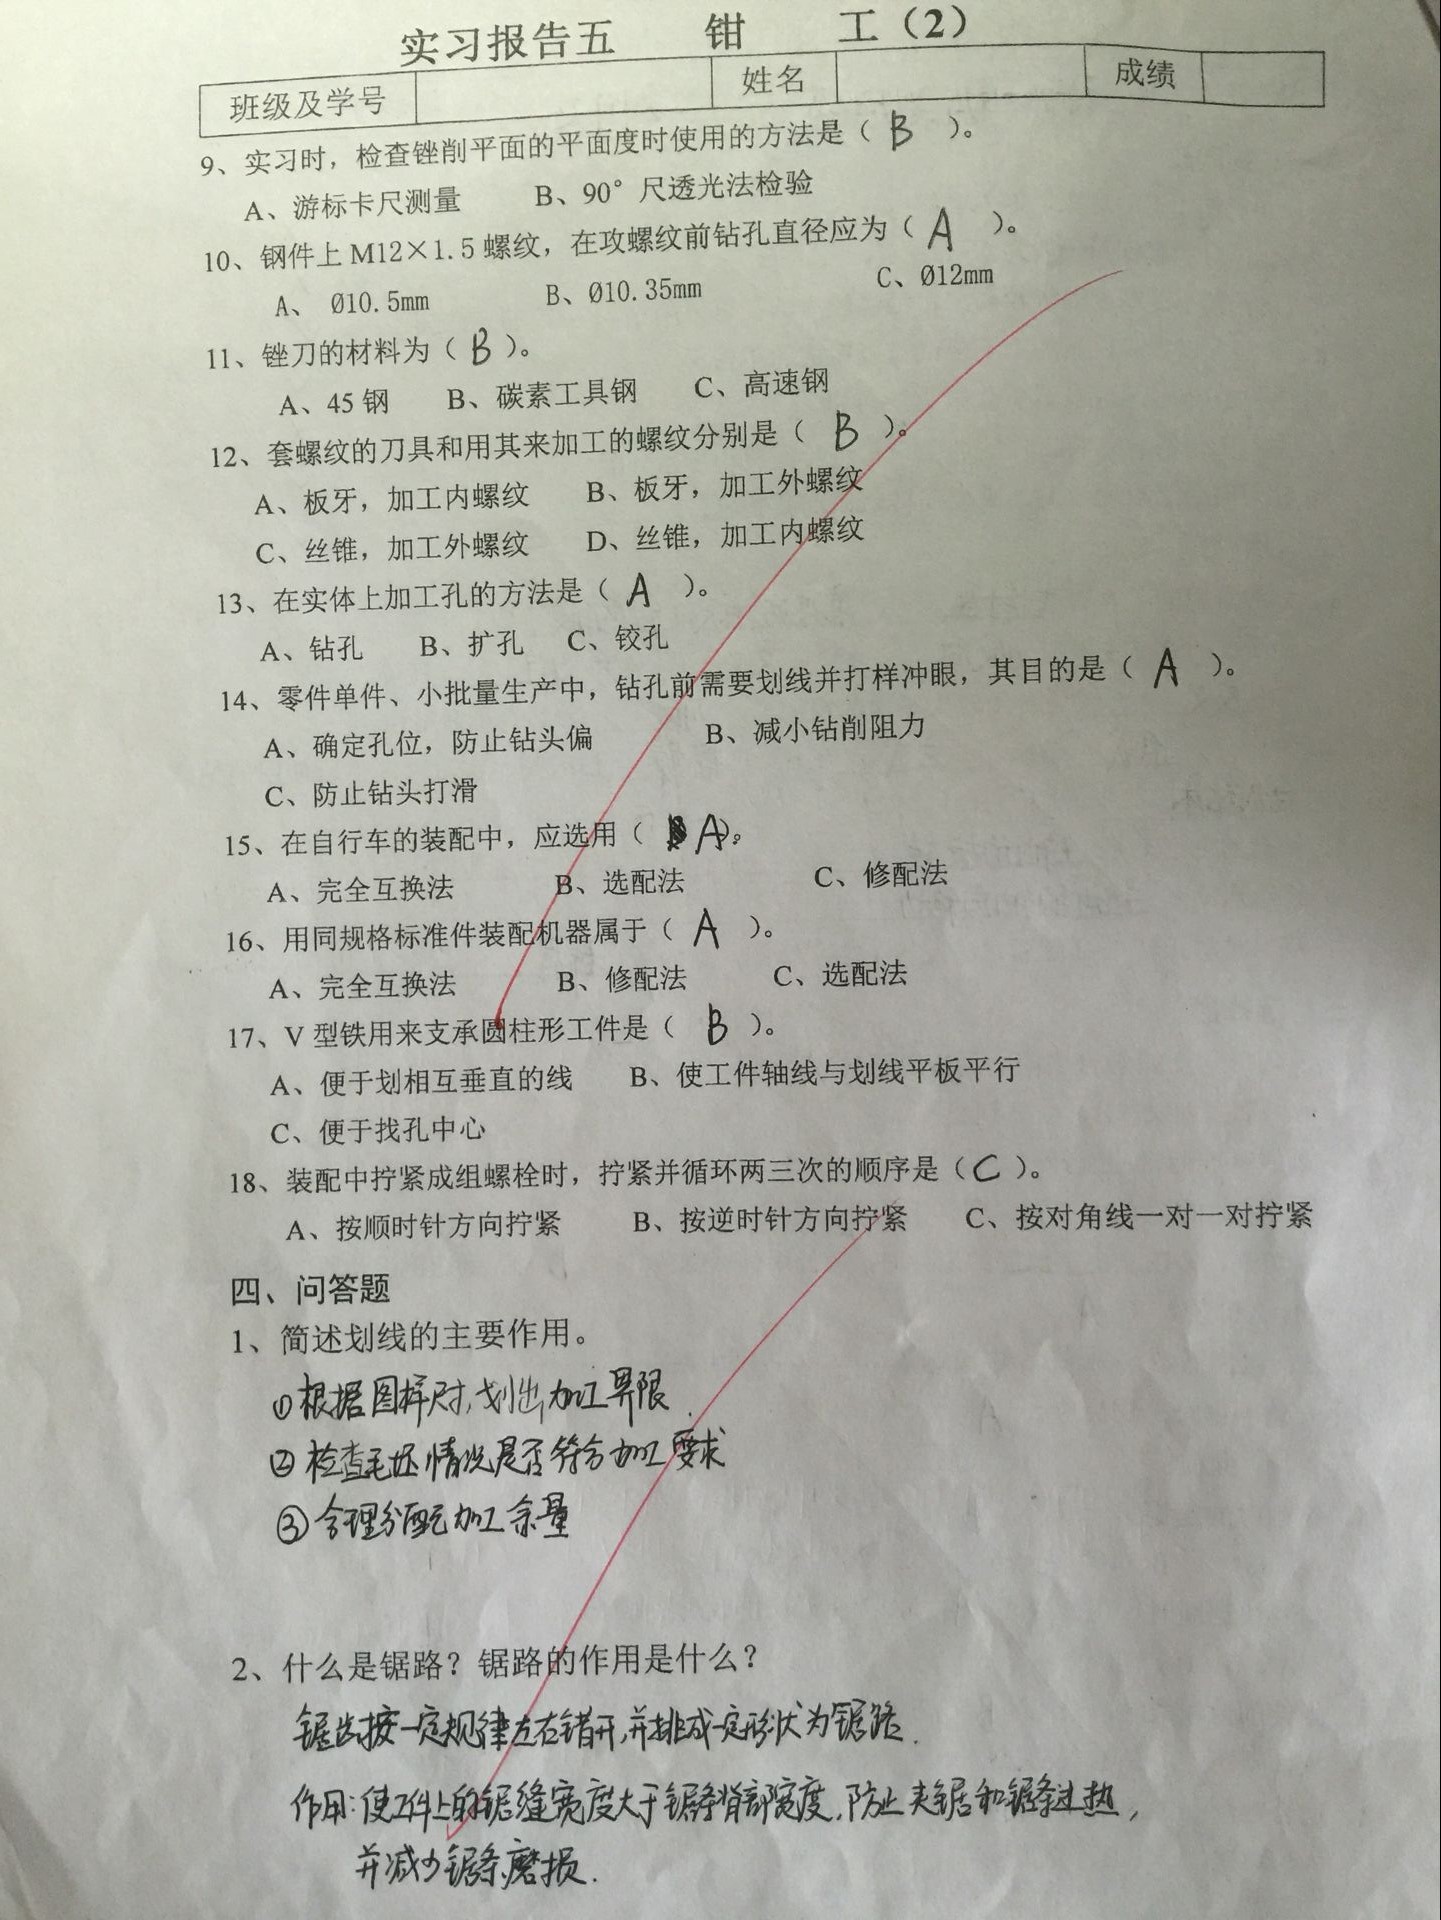 实习报告五 钳 工（2）
班级及学号 姓名 成绩
9、实习时，检查锉削平面的平面度时使用的方法是（ B ）。
A、游标卡尺测量 B、90°尺透光法检验
10、钢件上 M12×1.5 螺纹，在攻螺纹前钻孔直径应为（ A ）。
A、 Ø10.5mm B、Ø10.35mm C、Ø12mm
11、锉刀的材料为（ B ）。
A、45 钢 B、碳素工具钢 C、高速钢
12、套螺纹的刀具和用其来加工的螺纹分别是（ B ）。
A、板牙，加工内螺纹 B、板牙，加工外螺纹
C、丝锥，加工外螺纹 D、丝锥，加工内螺纹
13、在实体上加工孔的方法是（ A ）。
A、钻孔 B、扩孔 C、铰孔
14、零件单件、小批量生产中，钻孔前需要划线并打样冲眼，其目的是（ A ）。
A、确定孔位，防止钻头偏 B、减小钻削阻力
C、防止钻头打滑
15、在自行车的装配中，应选用（ A ）。
A、完全互换法 B、选配法 C、修配法
16、用同规格标准件装配机器属于（ A ）。
A、完全互换法 B、修配法 C、选配法
17、V 型铁用来支承圆柱形工件是（ B ）。
A、便于划相互垂直的线 B、使工件轴线与划线平板平行
C、便于找孔中心
18、装配中拧紧成组螺栓时，拧紧并循环两三次的顺序是（ C ）。
A、按顺时针方向拧紧 B、按逆时针方向拧紧 C、按对角线一对一对拧紧
四、问答题
1、简述划线的主要作用。
①根据图样尺寸,划出加工界限.
②检查毛坯情况是否符合加工要求
③合理分配加工余量
2、什么是锯路？锯路的作用是什么？
锯齿按一定规律左右错开,并排成一定形状为锯路.
作用:使工件上的锯缝宽度大于锯条背部宽度,防止夹锯和锯条过热,
并减少锯条磨损.